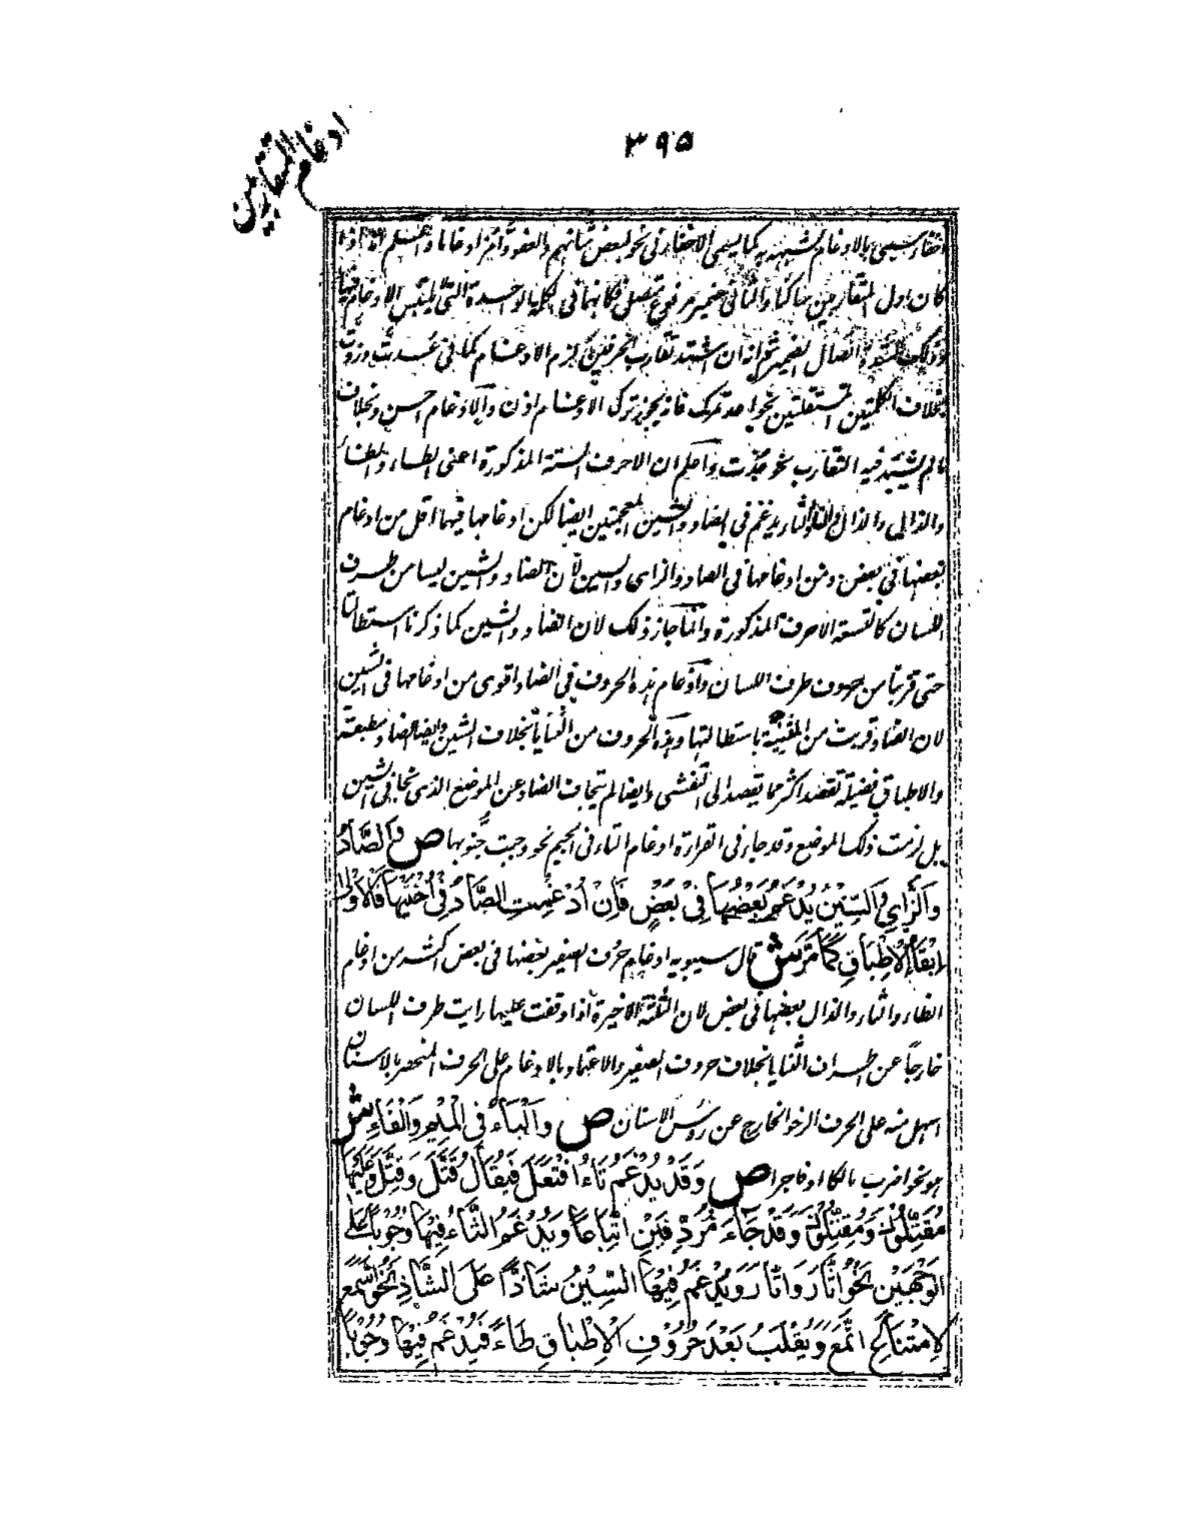 ٣٩٥
ادغام المتقاربين
اخفاء يسمى بالادغام لشبهه به كما يسمى الاخفاء فى نحو لبعض شانهم والعفو وأمر ادغاما واعلم انه اذا
كان اول المتقاربين ساكنا والثانى ضمير مرفوع متصل فكانهما فى الكلمة الواحدة التى لا يلتبس الادغام فيها
وذلك لشدة اتصال الضمير ثم انه ان اشتد تقارب الحرفين لزم الادغام كما فى عدت وزدت
بخلاف الكلمتين المستقلتين نحو اعد تمرك فانه يجوز ترك الادغام اذن والادغام احسن وبخلاف
ما لم يشتد فيه التقارب نحو عذت واعلم ان الاحرف الستة المذكورة اعنى الطاء والظاء
والدال والذال والتاء والثاء يدغم فى الضاد والشين المعجمتين ايضا لكن ادغامها فيهما اقل من ادغام
بعضها فى بعض ومن ادغامها فى الصاد والزاى والسين لان الضاد والشين ليسا من طرف
اللسان كالتسعة الاحرف المذكورة وانما جاز ذلك لان الضاد والشين كما ذكرنا استطالتا
حتى قربتا من حروف طرف اللسان وادغام هذه الحروف فى الضاد اقوى من ادغامها فى الشين
لان الضاد قربت من الثنية باستطالتها وهذه الحروف من الثنايا بخلاف الشين وايضا الضاد مطبقة
والاطباق فضيلة تقصد اكثر مما يقصد الى التفشى وايضا لم يتجاف الضاد عن الموضع الذى تجافى الشين
بل لزمت ذلك الموضع وقد جاء فى القراءة ادغام التاء فى الجيم نحو وجبت جنوبها ص وَالصَّادُ
وَالزَّايُ وَالسِّيْنُ يُدْغَمُ بَعْضُهَا فِيْ بَعْضٍ فَإِنْ أُدْغِمَتِ الصَّادُ فِيْ أُخْتَيْهَا فَالْأَوْلَى
إِبْقَاءُ الْإِطْبَاقِ كَمَا مَرَّ ش قال سيبويه ادغام حروف الصفير بعضها فى بعض اكثر من ادغام
الظاء والثاء والذال بعضها فى بعض لان الثلثة الاخيرة اذا وقفت عليها رايت طرف اللسان
خارجاً عن اطراف الثنايا بخلاف حروف الصفير والاعتماد بالادغام على الحرف المنحصر بالاسنان
اسهل منه على الحرف الرخو الخارج عن رؤس الاسنان ص وَالْبَاءُ فِي الْمِيْمِ وَالْفَاءِ ش
هو نحو اضرب مالكا او فاجرا ص وَقَدْ يُدْغَمُ تَاءُ افْتَعَلَ فَيُقَالُ قَتَّلَ وَقِتَّلَ وَعَلَيْهَا
مُقَتِّلُوْنَ وَمُقِتِّلُوْنَ وَقَدْ جَاءَ مُرُدِّفِيْنَ اتِّبَاعًا وَيُدْغَمُ الثَّاءُ فِيْهَا وُجُوْبًا عَلَى
الْوَجْهَيْنِ نَحْوُ اثَّارَ وَاتَّارَ وَيُدْغَمُ فِيْهَا السِّيْنُ شَاذًّا عَلَى الشَّاذِّ نَحْوُ اسَّمَعَ
لِامْتِنَاعِ اتَّمَعَ وَيُقْلَبُ بَعْدَ حُرُوْفِ الْإِطْبَاقِ طَاءً فَيُدْغَمُ فِيْهَا وُجُوْبًا